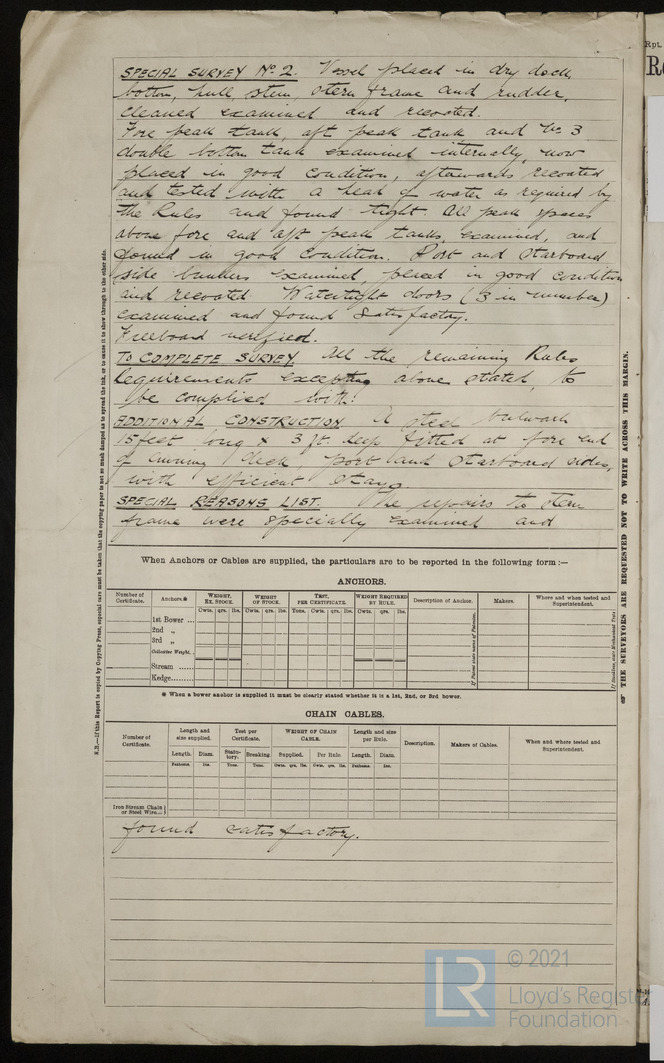 SPECIAL SURVEY No. 2. Vessel placed in dry dock,
bottom, hull, stem stern frame and rudder,
cleaned examined and recoated.
Fore peak tank, aft peak tank and No. 3
double bottom tank examined internally, now
placed in good condition, afterwards recoated
and tested with a head of water as required by
the Rules and found tight. All peak spaces
above fore and aft peak tanks, examined, and
found in good condition. Port and Starboard
side bunkers examined, placed in good condition
and recoated Watertight doors (3 in number)
examined and found Satisfactory.
Freeboard verified.
TO COMPLETE SURVEY. All the remaining Rules
requirements excepting above stated, to
be complied with.
ADDITIONAL CONSTRUCTION A steel bulwark
15 feet long x 3 ft. deep fitted at fore end
of deck, port and Starboard sides,
with efficient stays.
SPECIAL REASONS LIST. The repairs to stern
frame were specially examined and
When Anchors or Cables are supplied, the particulars are to be reported in the following form:—
ANCHORS.
Number of Certificate. Anchors.* WEIGHT, EX. STOCK. WEIGHT OF STOCK. TEST, PER CERTIFICATE. WEIGHT REQUIRED BY RULE. Description of Anchor. Makers. Where and when tested and Superintendent.
Cwts. qrs. lbs. Cwts. qrs. lbs. Tons. Cwts. qrs. lbs. Cwts. qrs. lbs.
1st Bower ...
2nd „
3rd „
Collective Weight.
Stream ......
Kedge.......
* When a bower anchor is supplied it must be clearly stated whether it is a 1st, 2nd, or 3rd bower.
CHAIN CABLES.
Number of Certificate. Length and size supplied. Test per Certificate. WEIGHT OF CHAIN CABLE. Length and size per Rule. Description. Makers of Cables. When and where tested and Superintendent.
Length. Diam. Statutory. Breaking Supplied. Per Rule. Length. Diam.
Fathoms. Ins. Tons. Tons. Cwts. qrs. lbs. Cwts. qrs. lbs. Fathoms. Ins.
Iron Stream Chain
or Steel Wire...
found satisfactory.
N.B.—If this Report is copied by Copying Press, especial care must be taken that the copying paper is not so much damped as to spread the Ink, or to cause it to show through to the other side.
THE SURVEYORS ARE REQUESTED NOT TO WRITE ACROSS THIS MARGIN.
Rpt.
LR
© 2021
Lloyd's Register
Foundation